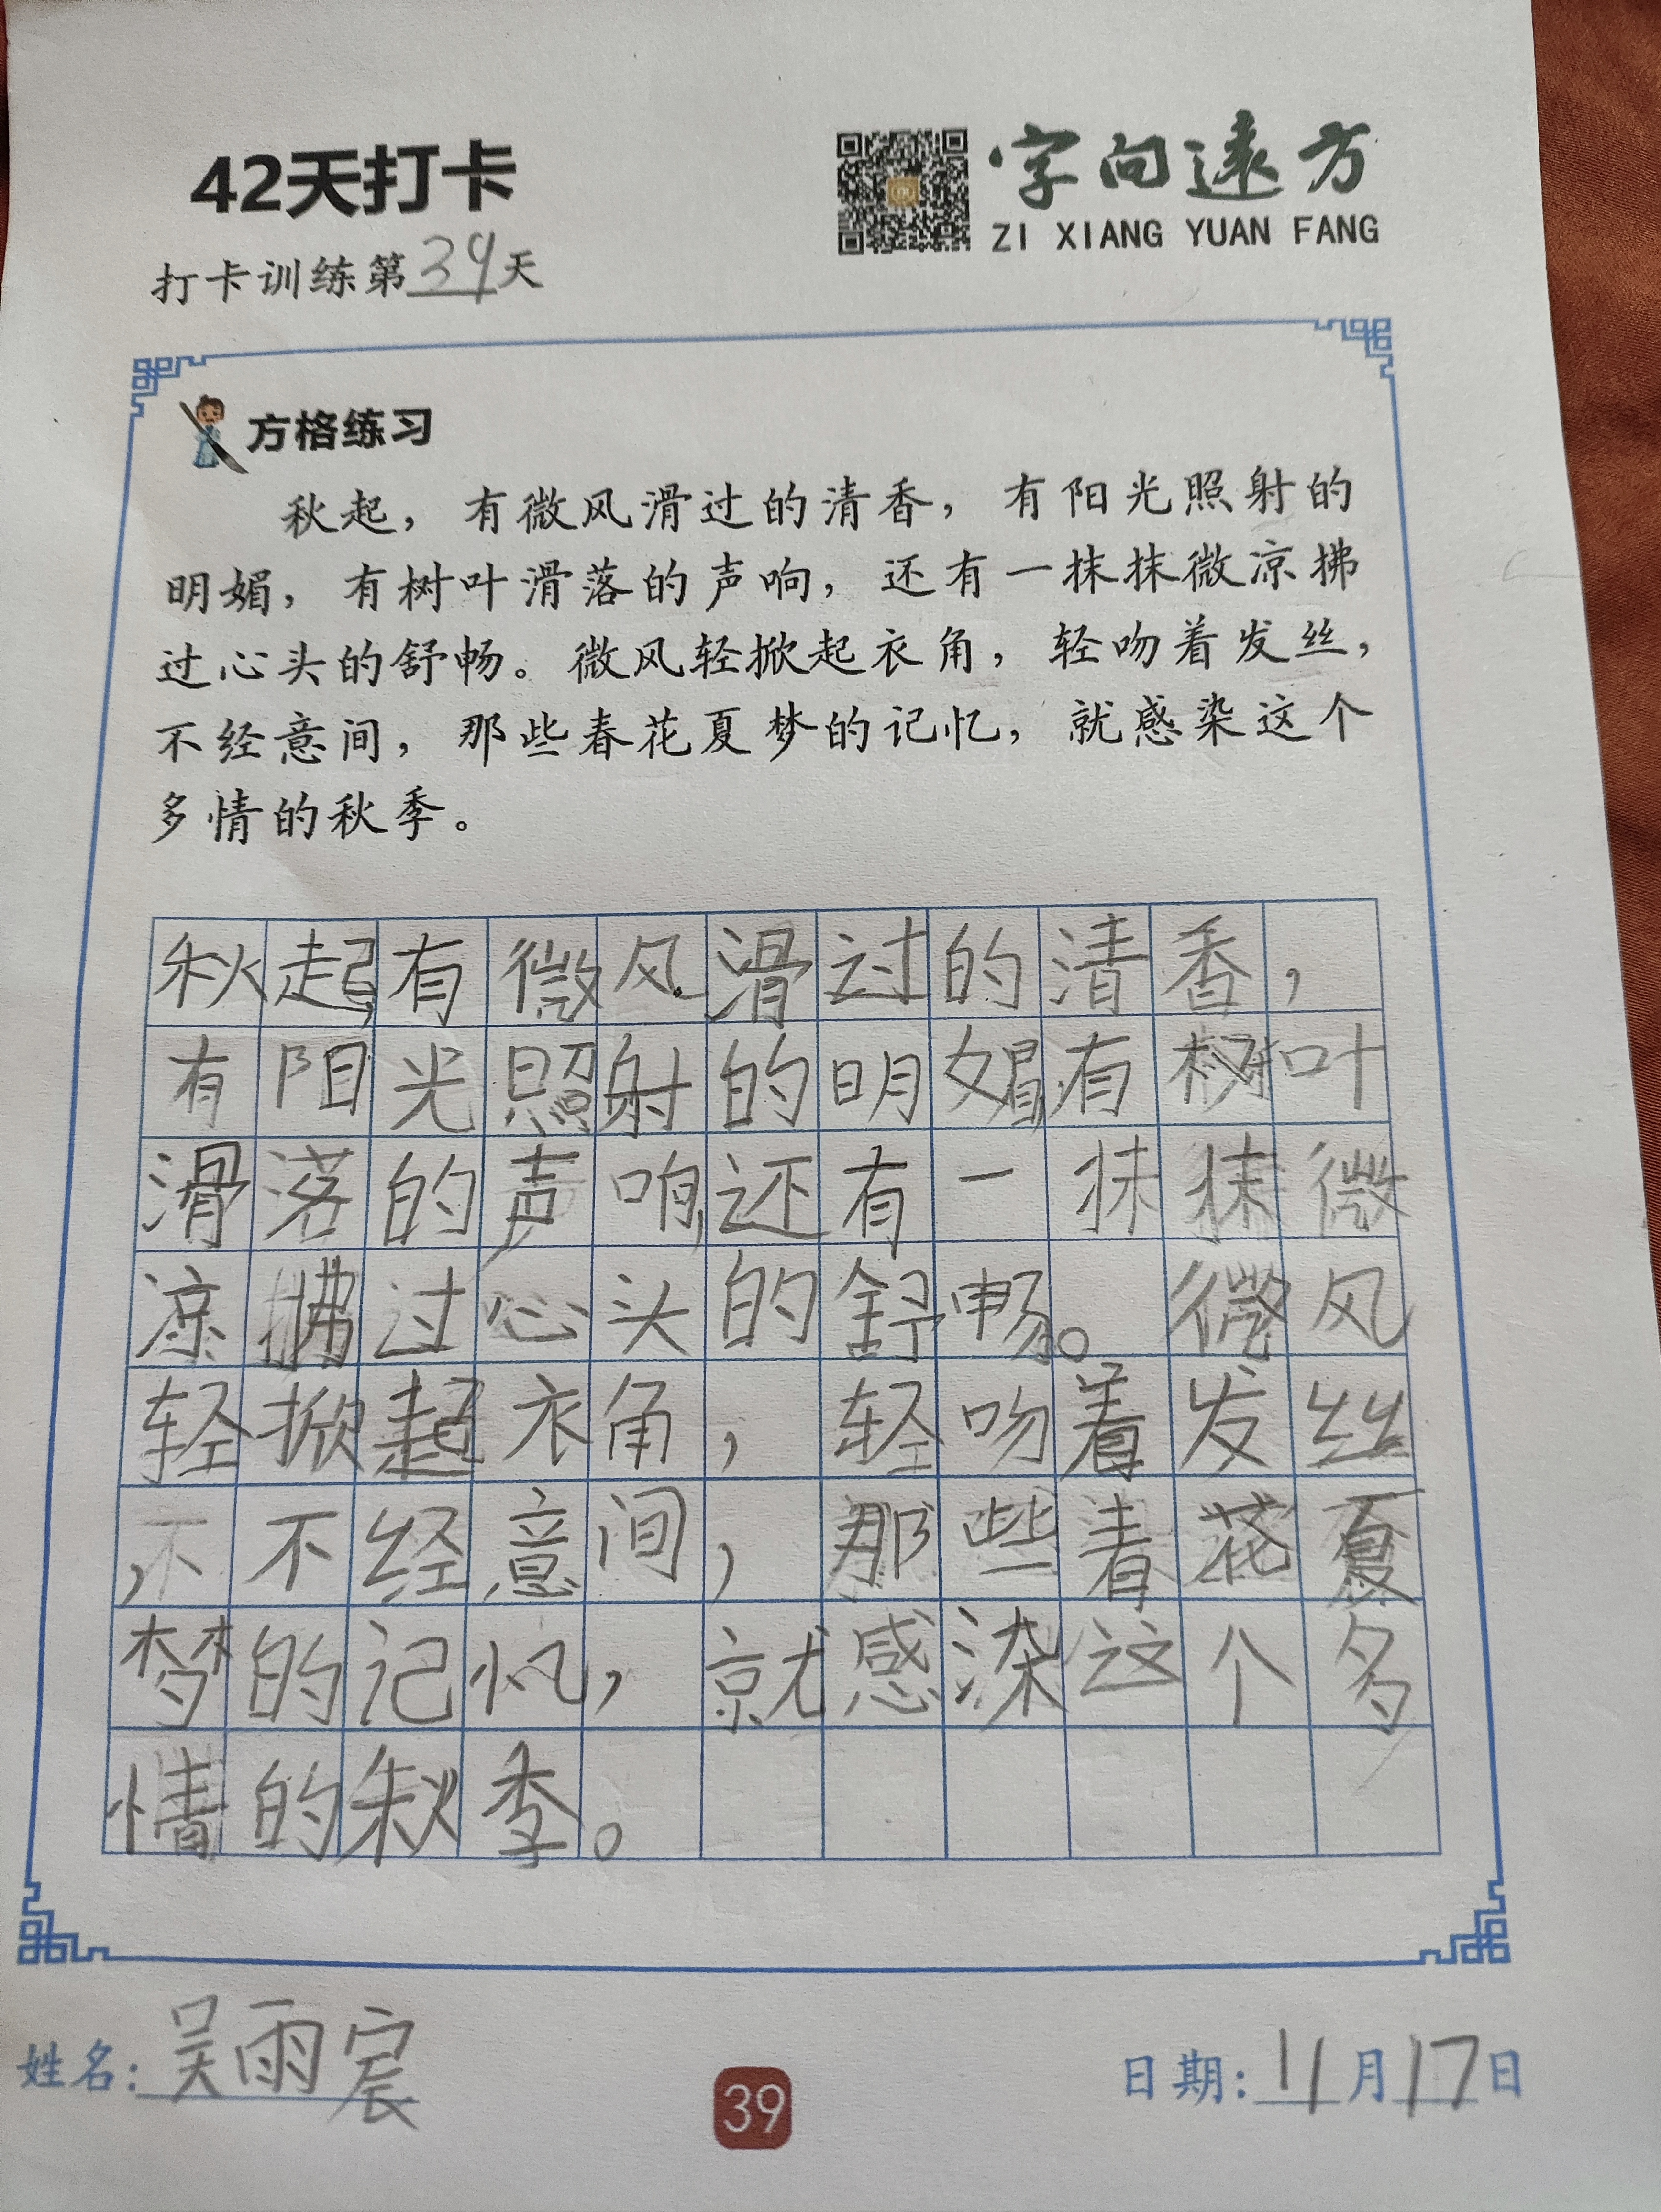 42天打卡
字向远方
ZI XIANG YUAN FANG
打卡训练第39天
方格练习
秋起，有微风滑过的清香，有阳光照射的
明媚，有树叶滑落的声响，还有一抹抹微凉拂
过心头的舒畅。微风轻掀起衣角，轻吻着发丝，
不经意间，那些春花夏梦的记忆，就感染这个
多情的秋季。
秋起，有微风滑过的清香，
有阳光照射的明媚，有树叶
滑落的声响，还有一抹抹微
凉拂过心头的舒畅。微风
轻掀起衣角，轻吻着发丝
，不不经意间，那些春花夏
梦的记忆，就感染这个多
情的秋季。
姓名：吴雨宸
39
日期：11月17日